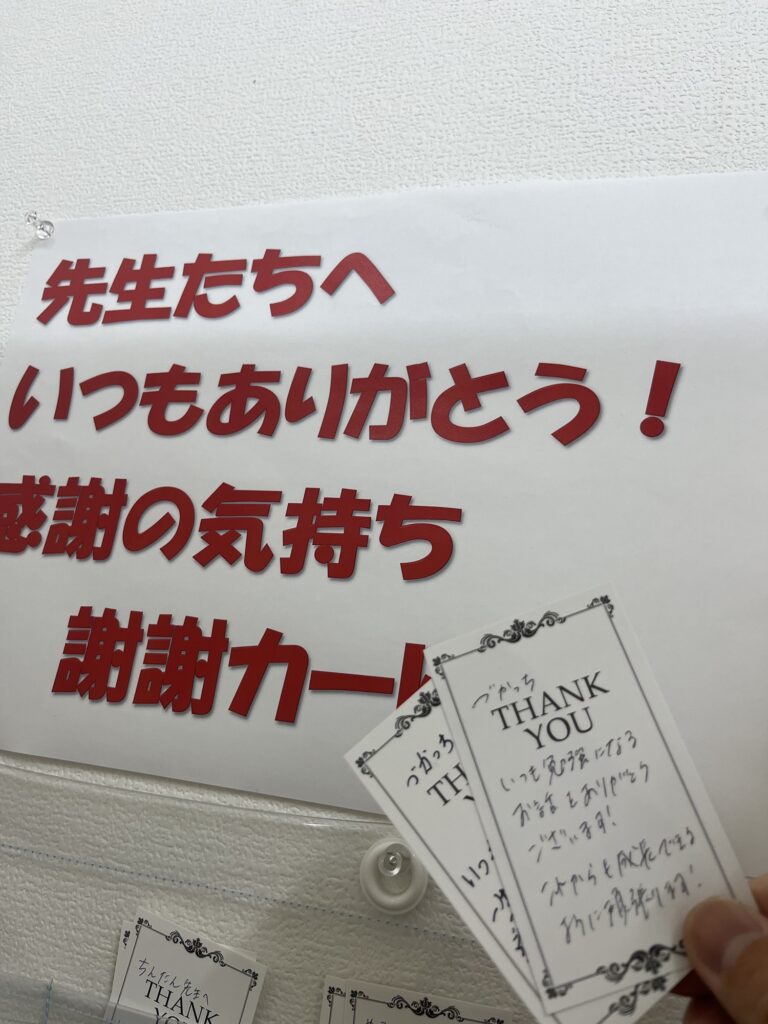 先生たちへ
いつもありがとう！
感謝の気持ち
謝謝カー
づかっち
THANK
YOU
いつも勉強になる
お話をありがとう
ございます!
これからも成長できる
ように頑張ります!
づかっち
TH
Y
いつ
ちんたん先生へ
THANK
YOU